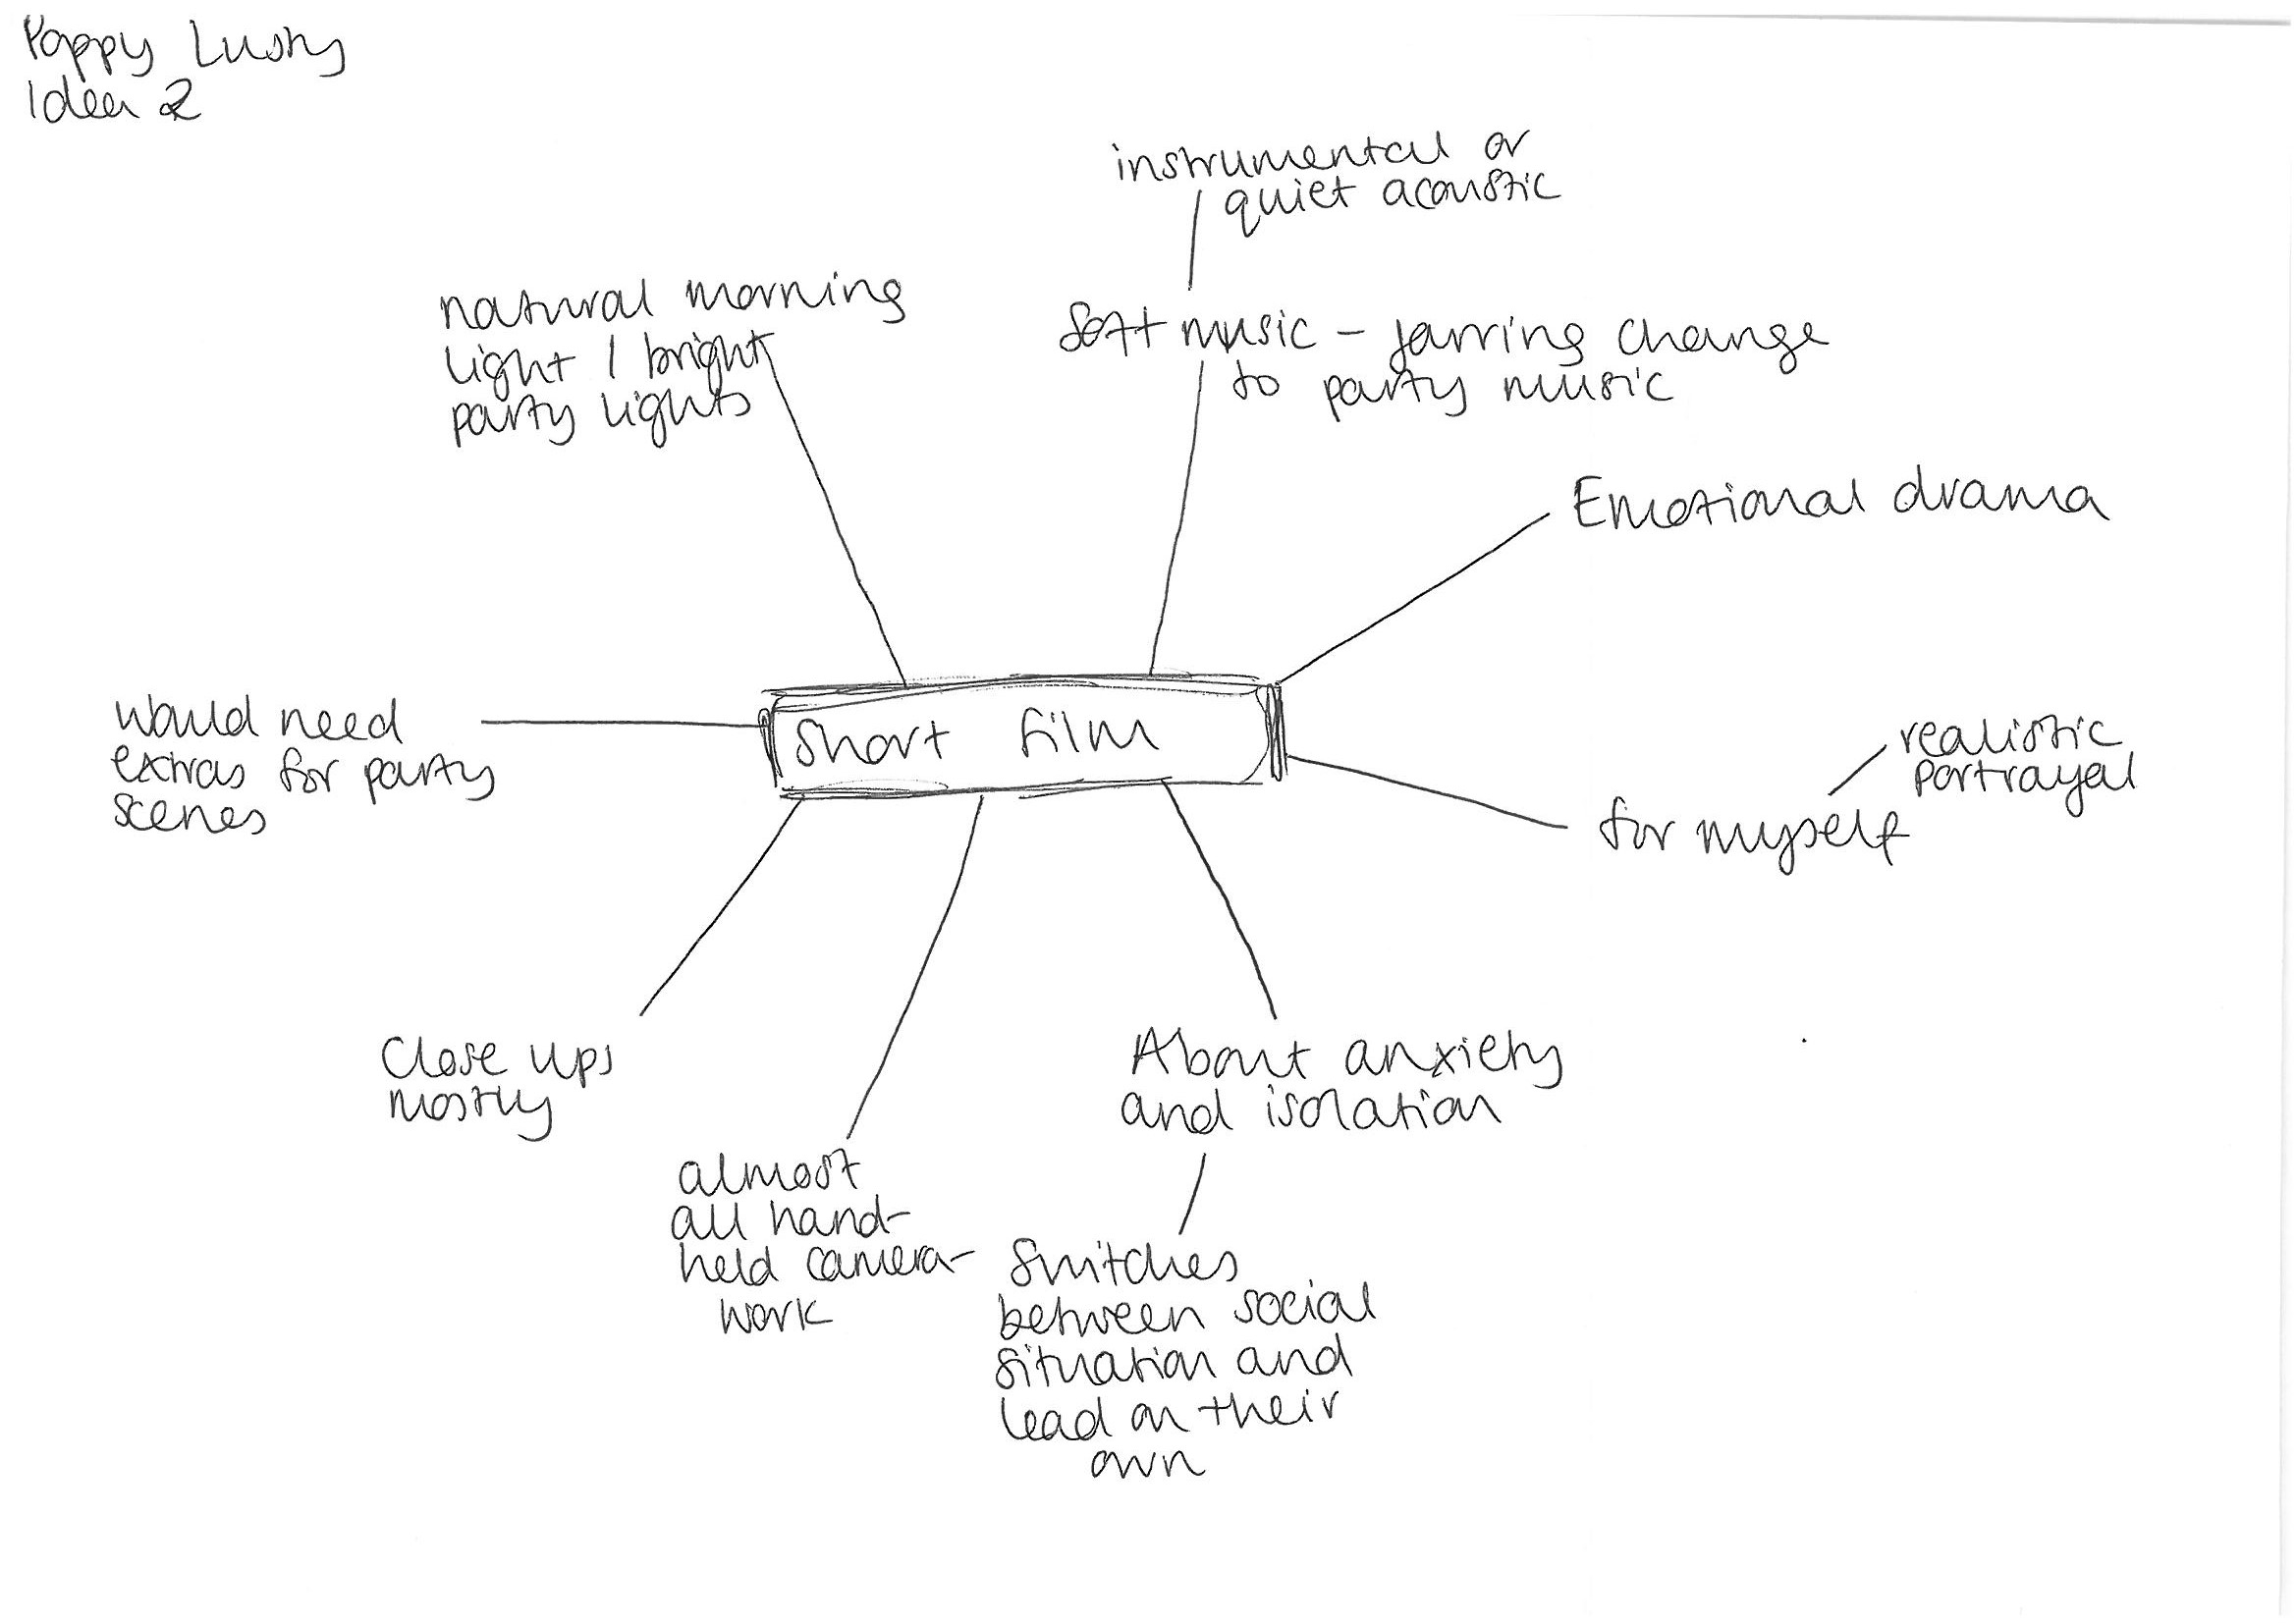 Poppy Lusby
Idea 2
instrumental or
quiet acoustic
natural morning
light / bright
party lights
Soft music - jarring change
to party music
Emotional drama
Would need
extras for party
scenes
Short film
realistic
portrayal
for myself
Close ups
mostly
almost
all hand-
held camera-
work
About anxiety
and isolation
Switches
between social
situation and
lead on their
own